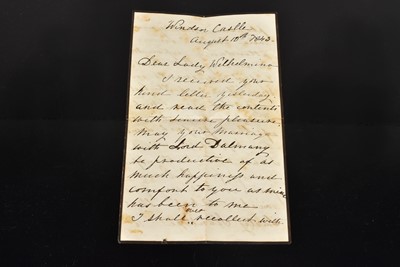 Windsor Castle
August 10th 1843.
Dear Lady Wilhelmina
I received your
kind letter yesterday
and read the contents
with sincere pleasure.
May your Marriage
with Lord Dalmeny
be productive of as
much happiness and
comfort to you as mine
has been to me
I shall ever recollect with